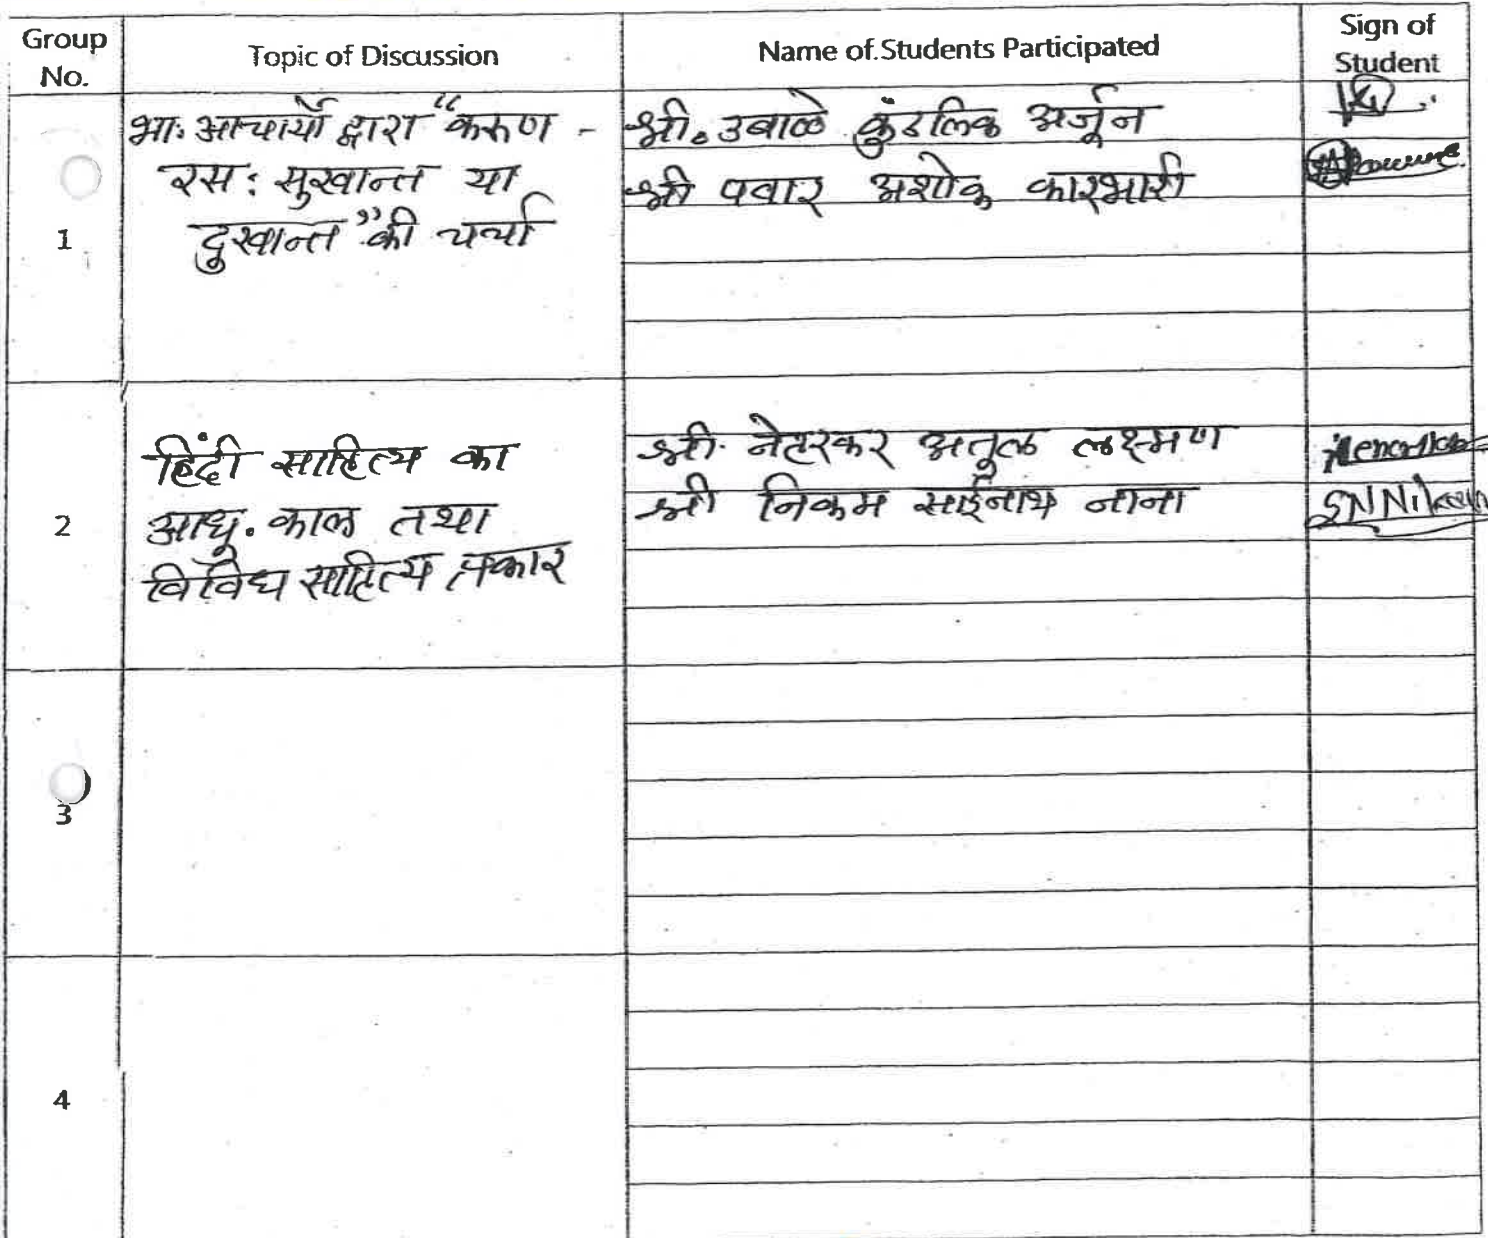 Group No.
Topic of Discussion
Name of Students Participated
Sign of Student
1
भा. आचार्यों द्वारा "करुण -
रस: सुखान्त या
दुखान्त" की चर्चा
श्री. उबाळे कुंडलिक अर्जून
श्री पवार अशोक कारभारी
2
हिंदी साहित्य का
आधु. काल तथा
विविध साहित्य प्रकार
श्री. नेहरकर अतूल लक्ष्मण
श्री निकम साईनाथ नाना
SNNikam
3
4